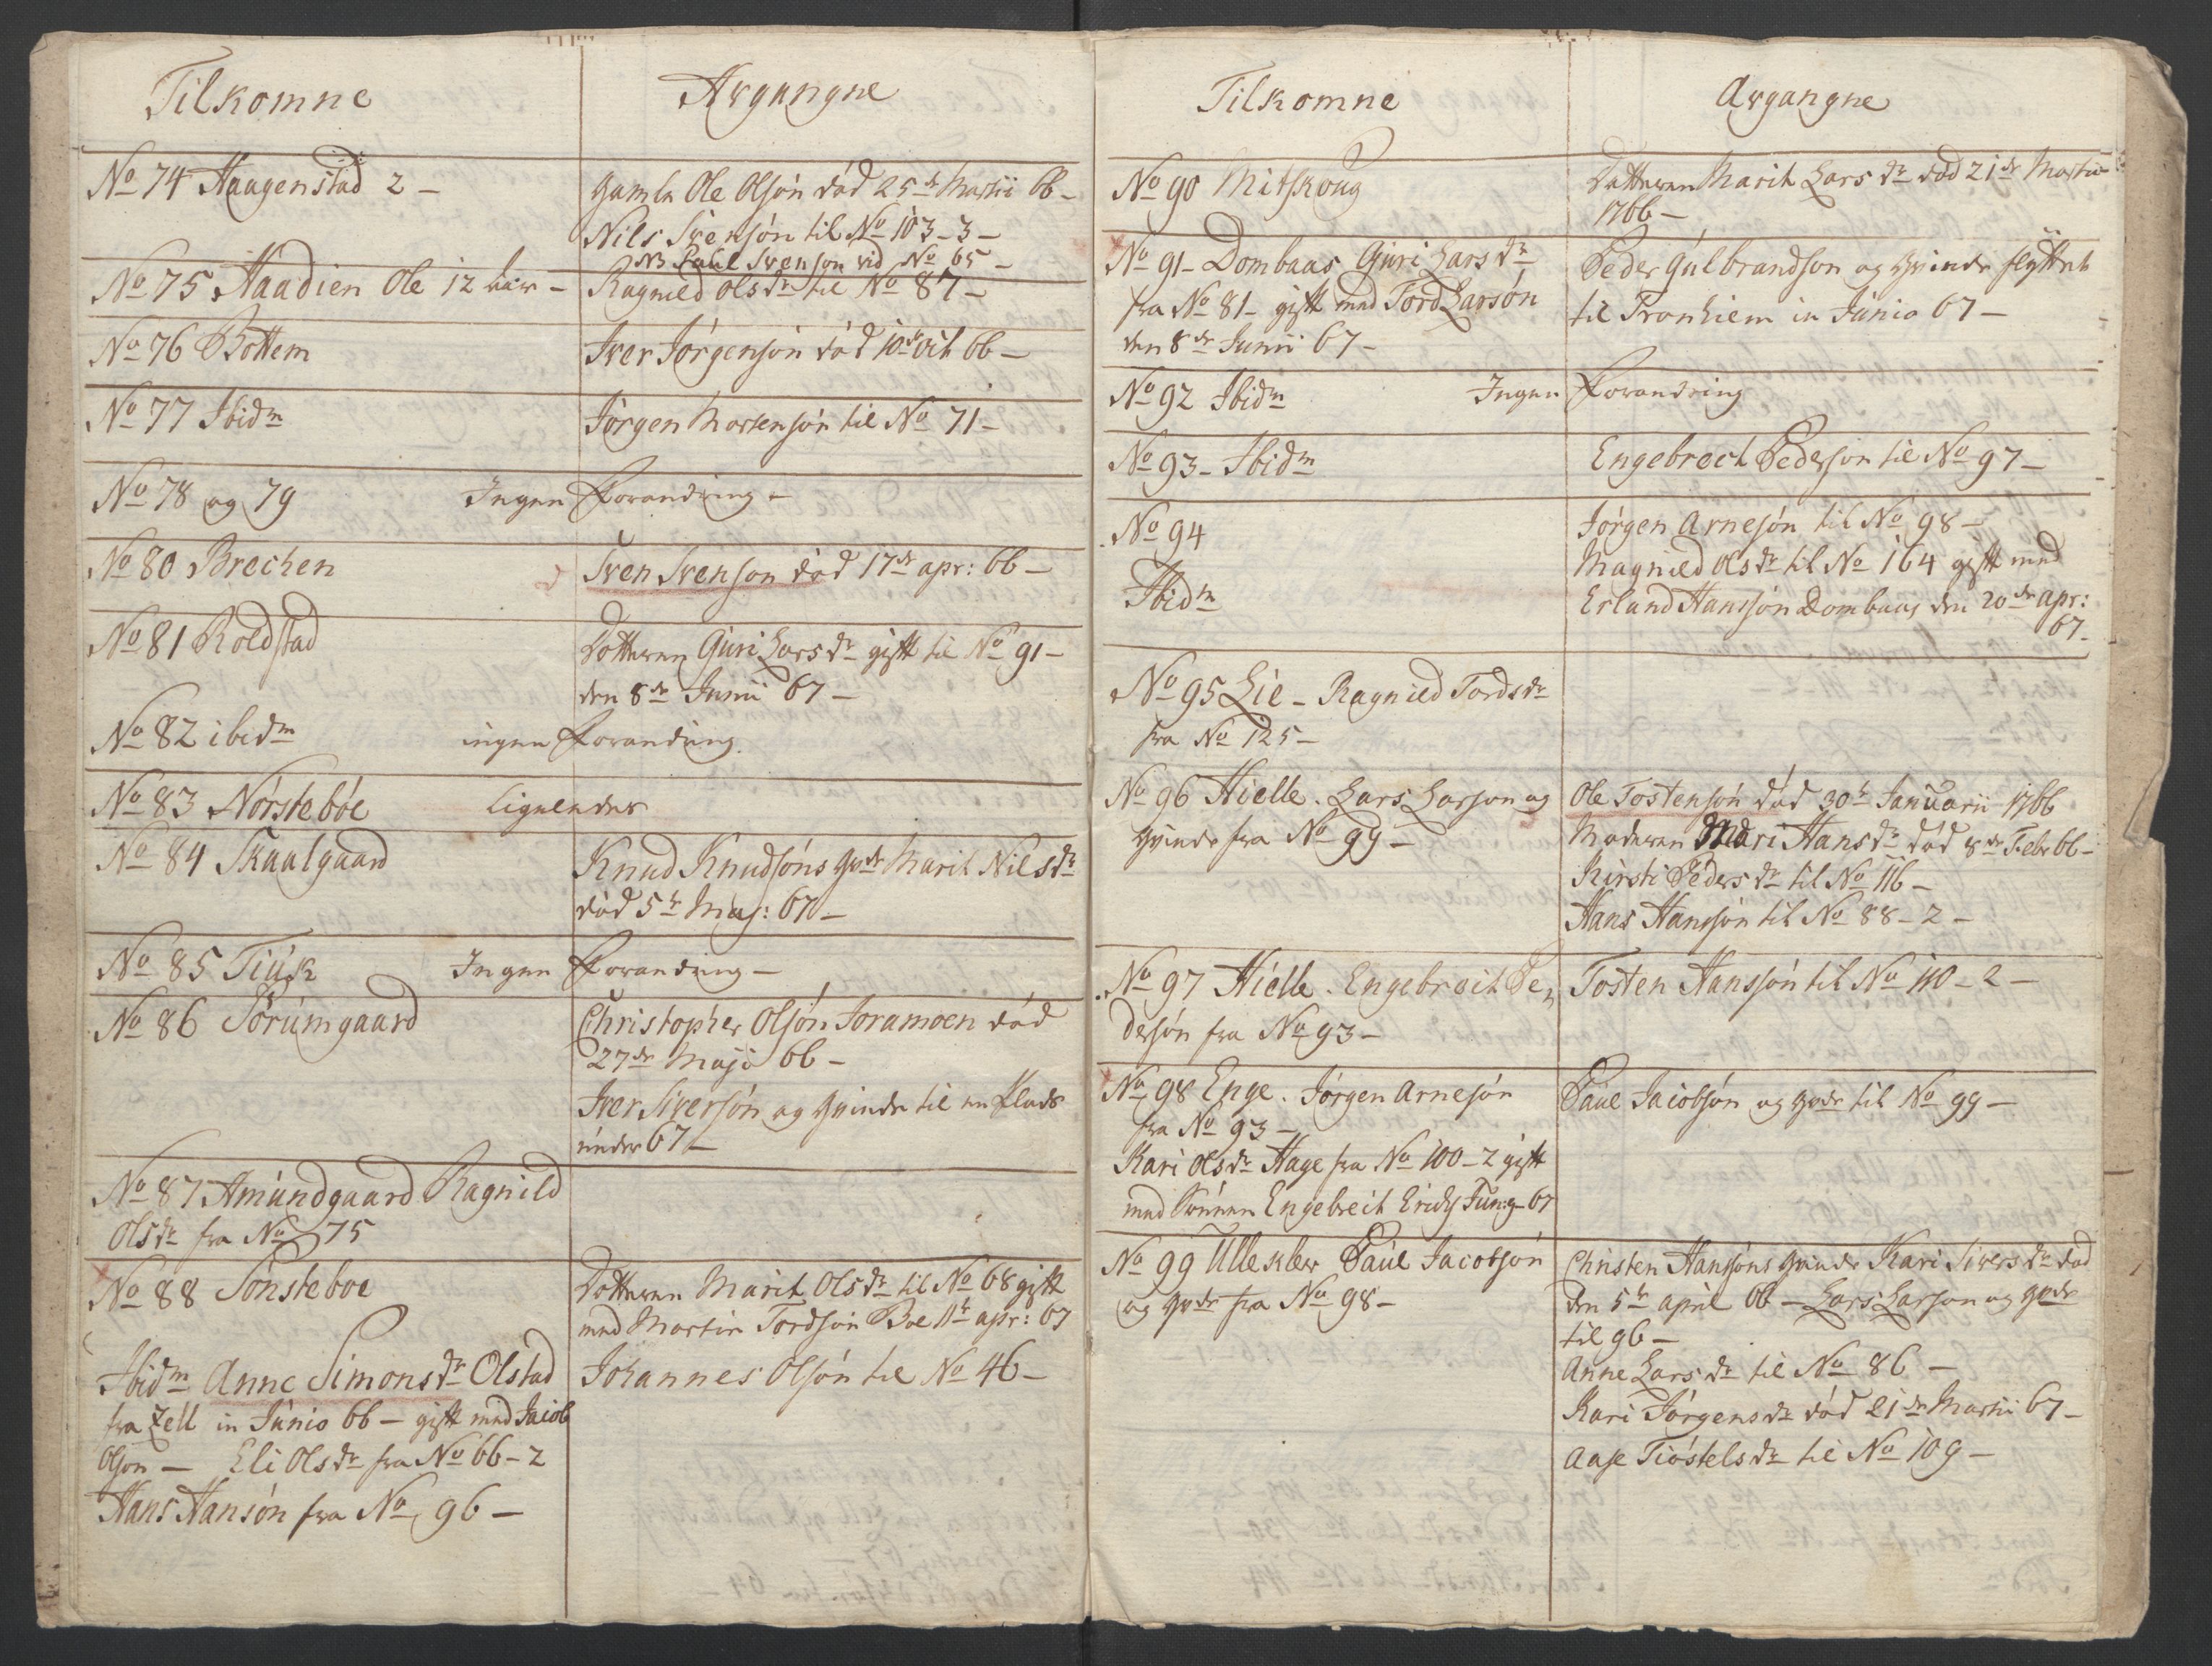 Tilkomne
Avgangne
No 74 Haagenstad 2 -
Gamle Ole Olsøn død 25de Martii 66 -
Nils Svensøn til No 103-3 -
NB Paul Svenson vid No 65 -
No 75 Haadien Ole 12 -
Ragnild Olsdr til No 87 -
No 76 Bottem
Iver Jørgensøn død 10de Oct 66 -
No 77 Ibidm
Jørgen Mortensøn til No 71 -
No 78 og 79 Ingen Forandring -
No 80 Brechen
Sven Svenson død 17de apr: 66 -
No 81 Roldstad
Dotteren Guri Larsdr gift til No 91 -
den 8de Junii 67 -
No 82 ibidm ingen Forandring.
No 83 Nørstebøe Ligeledes
No 84 Skaalgaard
Knud Knudsøns qvde Marit Nilsdr
død 5te Maj: 67 -
No 85 Tiúk Ingen Forandring -
No 86 Sørúmgaard
Christopher Olsøn Joramoen død
27de Maji 66 -
Iver Siversøn og Qvinde til en Plads
únder 67 -
No 87 Amúndgaard Ragnild
Olsdr fra No 75
No 88 Sønsteboe
Dotteren Marit Olsdr til No 68 gift
med Martin Tordsøn Boe 11te apr: 67
Ibidm Anne Simonsdr Olstad
fra Zell in Júnio 66 - gift med Jacob
Olson - Eli Olsdr fra No 66-2
Hans Hansøn fra No 96 -
Johannes Olsøn til No 46 -
Tilkomne
Avgangne
No 90 Mitskoug
Datteren Marit Larsdr død 21de Martii
1766 -
No 91 - Dombaas Guri Larsdr
fra No 81 - gift med Tord Larsøn
den 8de Junii 67 -
Peder Gúlbrandson og Qvinde flyttet
til Tronhiem in Júnio 67 -
No 92 Ibidm Ingen Forandring
No 93 - Ibidm
Engebrecht Pedersøn til No 97 -
No 94
Ibidm
Jørgen Arnesøn til No 98 -
Magnild Olsdr til No 164 gift med
Erland Hansøn Dombaas den 20de apr:
67 -
No 95 Lie - Ragnild Tordsdr
fra No 125 -
No 96 Hielle. Lars Larson og
Qvinde fra No 99 -
Ole Tostensøn død 30te Janúarii 1766
Moderen Mari Hansdr død 8de Febr 66 -
Kirsti Pedersdr til No 116 -
Hans Hansøn til No 88-2 -
No 97 Hielle. Engebrecht Pe-
dersøn fra No 93 -
Tosten Hansøn til No 110-2 -
No 98 Enge. Jørgen Arnesøn
fra No 93 -
Kari Olsdr Hage fra No 100-2 gift
med Sønnen Engebrecht Erichs Jung 67
Paúl Jacobsøn og qvde til No 99 -
No 99 Ulleklev Paúl Jacobsøn
og qvde fra No 98 -
Christen Hansøns Qvinde Kari Siversdr død
den 5te april 66 - Lars Larson og qvde
til 96 -
Anne Larsdr til No 86 -
Kari Jørgensdr død 21de Martii 67 -
Aase Tiøstelsdr til No 109 -